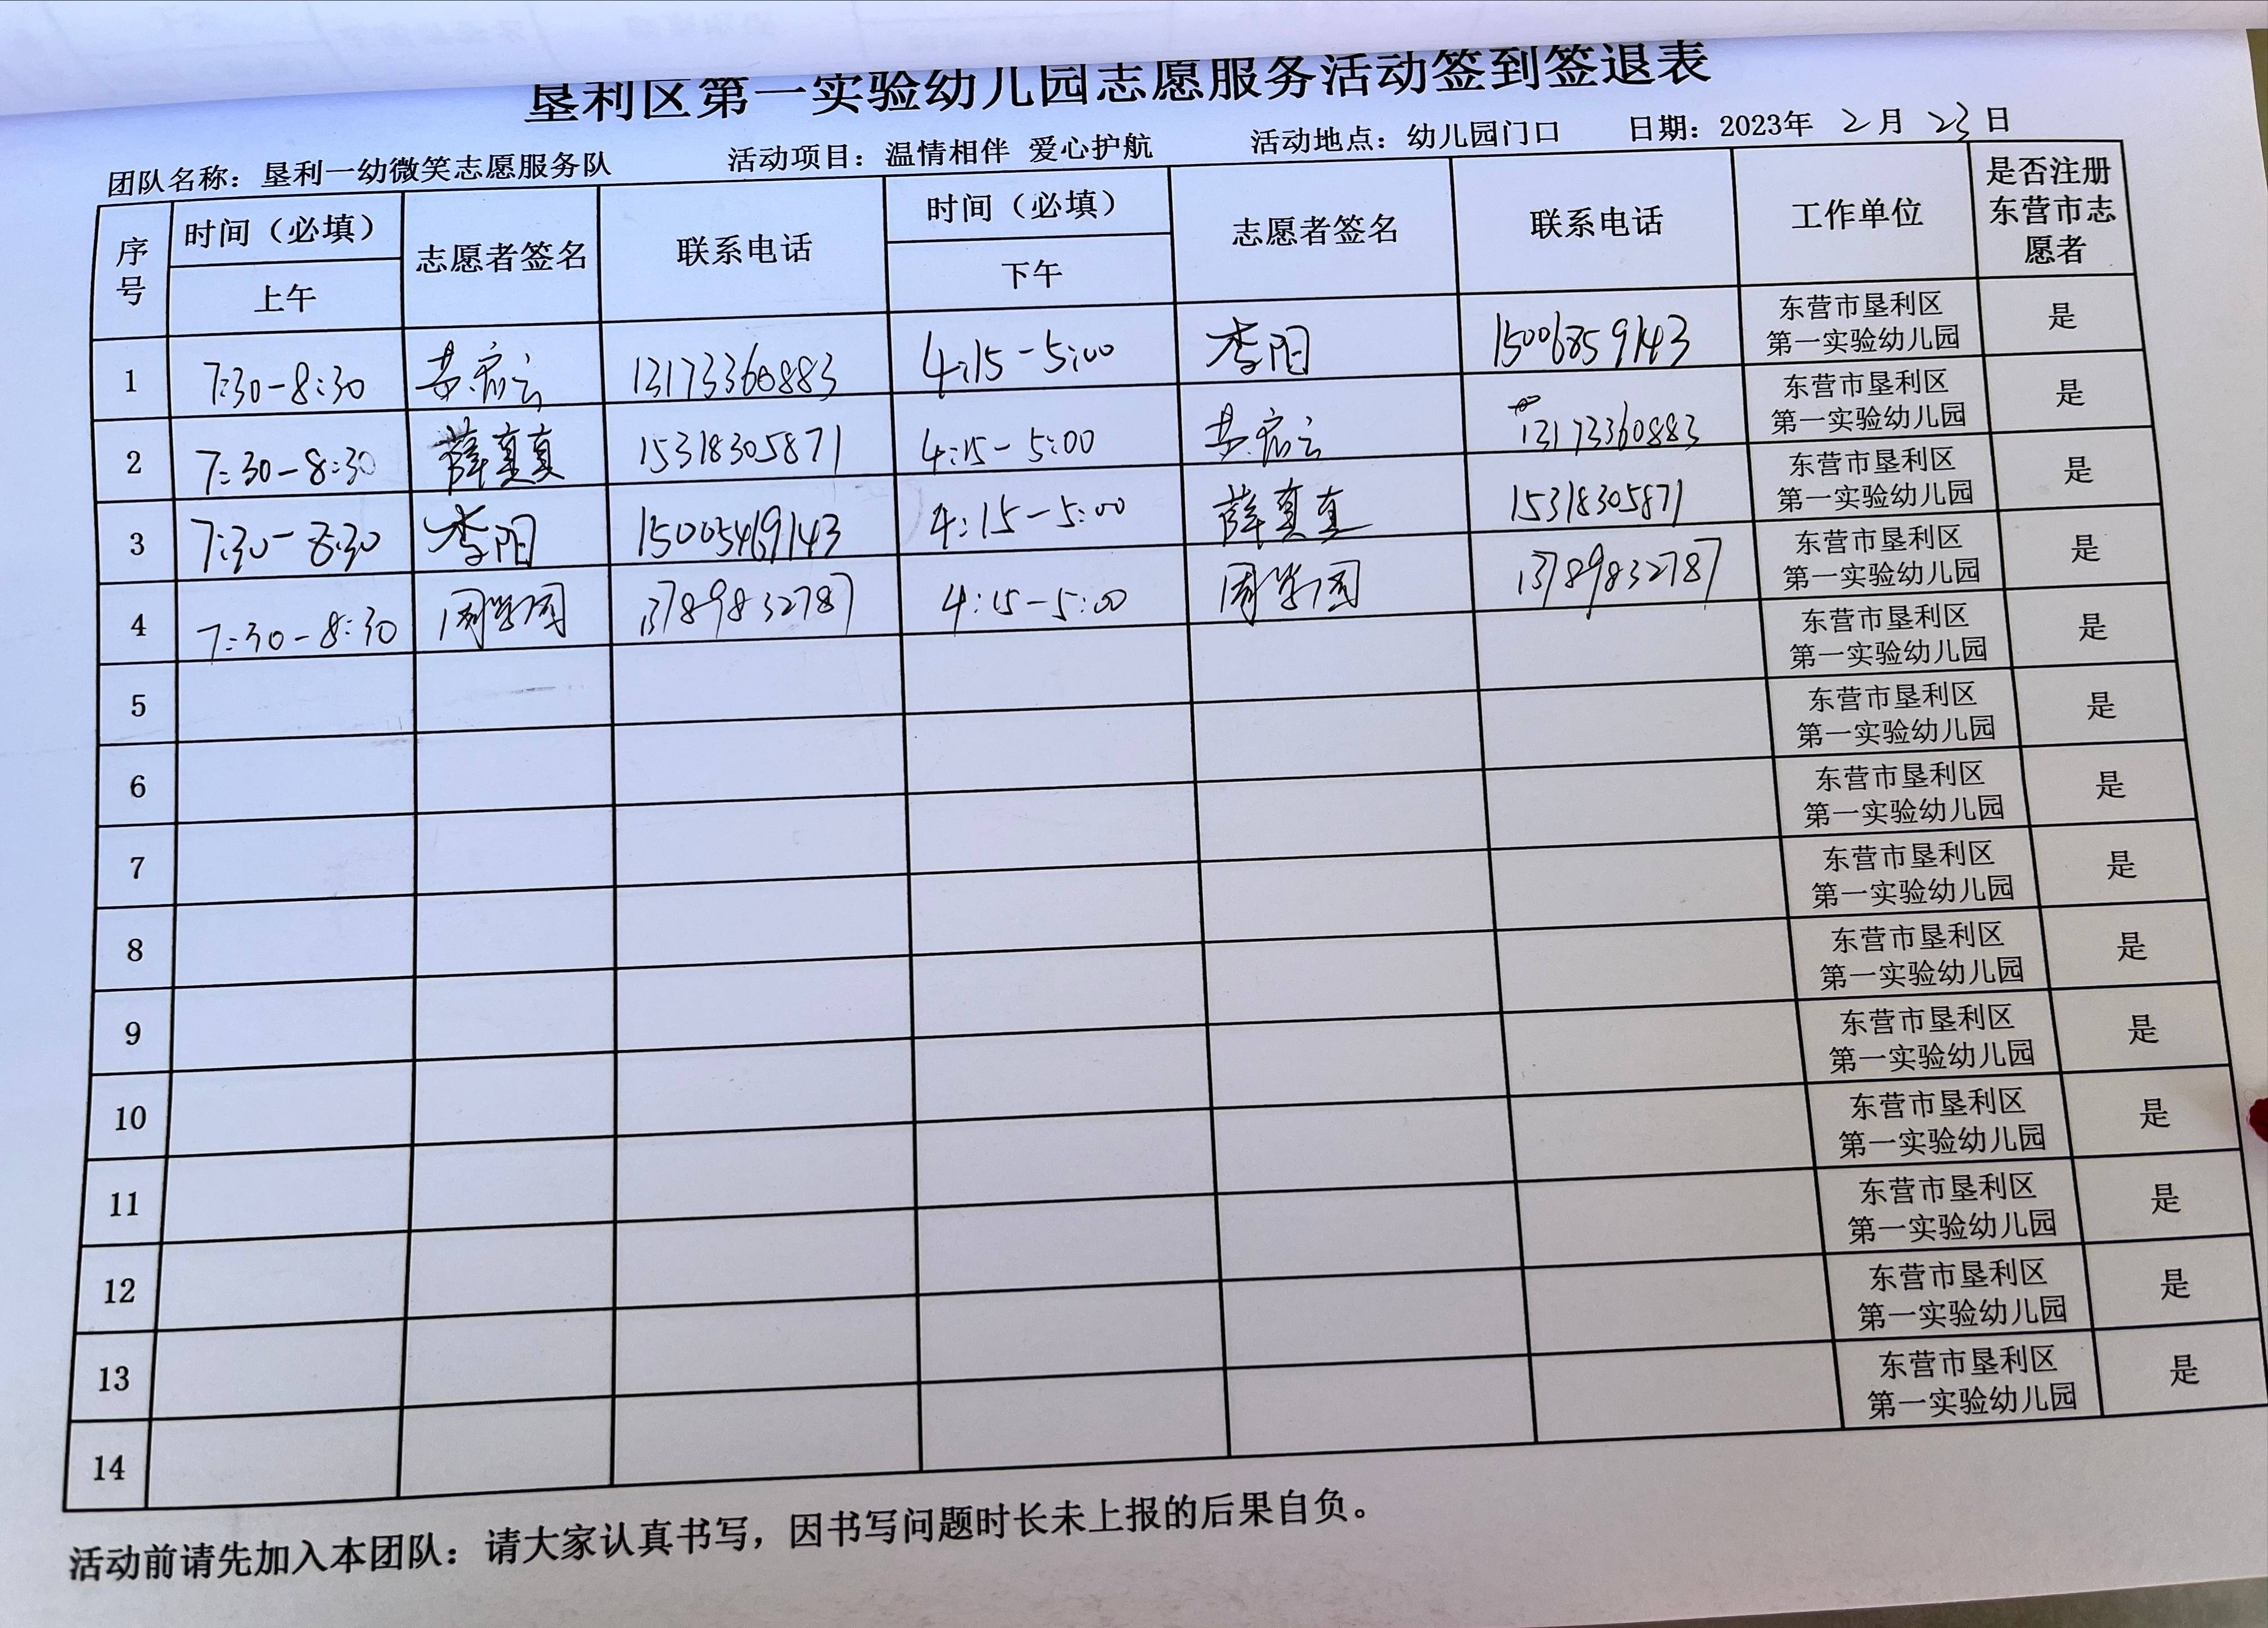 垦利区第一实验幼儿园志愿服务活动签到签退表
团队名称：垦利一幼微笑志愿服务队 活动项目：温情相伴 爱心护航 活动地点：幼儿园门口 日期：2023年 2月 23日
序号 时间（必填） 上午 志愿者签名 联系电话 时间（必填） 下午 志愿者签名 联系电话 工作单位 是否注册东营市志愿者
1 7:30-8:30 13173360883 4:15-5:00 李阳 东营市垦利区第一实验幼儿园 是
2 7:30-8:30 薛真真 15318305871 4:15-5:00 13173360883 东营市垦利区第一实验幼儿园 是
3 7:30-8:30 李阳 4:15-5:00 薛真真 15318305871 东营市垦利区第一实验幼儿园 是
4 7:30-8:30 13789832787 4:15-5:00 13789832787 东营市垦利区第一实验幼儿园 是
5 东营市垦利区第一实验幼儿园 是
6 东营市垦利区第一实验幼儿园 是
7 东营市垦利区第一实验幼儿园 是
8 东营市垦利区第一实验幼儿园 是
9 东营市垦利区第一实验幼儿园 是
10 东营市垦利区第一实验幼儿园 是
11 东营市垦利区第一实验幼儿园 是
12 东营市垦利区第一实验幼儿园 是
13 东营市垦利区第一实验幼儿园 是
14 东营市垦利区第一实验幼儿园 是
活动前请先加入本团队：请大家认真书写，因书写问题时长未上报的后果自负。